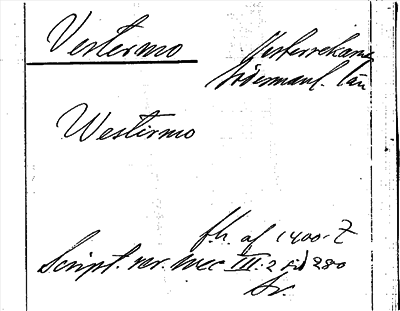 Vestermo
Vesterrekarne
Södermanl. län
Westirmo
f.h. af 1400-t
Script. rer. svec III:2 sid 280
Sr.